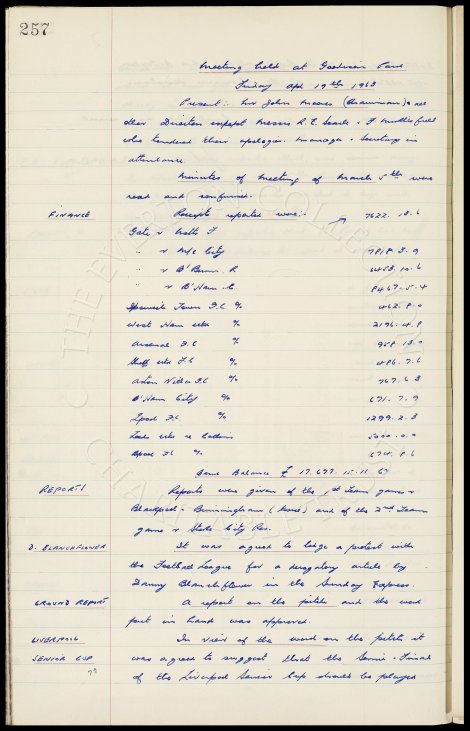 257
Meeting held at Goodison Park
Friday Apl 19th 1963
Present:- Mr John Moores (Chairman) & all
other Directors except Messrs R. E. Searle & F Micklesfield
who tendered their apologies. Manager & Secretary in
attendance
Minutes of Meeting of March 5th were
read and confirmed.
FINANCE Receipts reported were:- 7622.18.6
Gate v Notts F
" v M/c City 7818.3.9
" v B'Burn R
" v B'Ham C. 8467.5.4
Ipswich Town F.C % 462.8.0
West Ham Utd % 2196.4.8
Arsenal F.C % 958.13.0
Sheff Utd F.C % 486.7.6
Aston Villa F.C % 767.6.3
B'Ham City % 671.7.9
Lpool F.C. % 1299.2.3
Leeds Utd re 5000.0.0
F.C % 674.8.6
Bank Balance £ 17,677.15.11
REPORTS Reports were given of the 1st Team games v
Blackpool & Birmingham (home) and of the 2nd Team
game v Stoke City Res.
D. BLANCHFLOWER It was agreed to lodge a protest with
the Football League for a derogatory article by
Danny Blanchflower in the Sunday Express.
GROUND REPORT A report on the pitch and the work
put in hand was approved.
LIVERPOOL In view of the work on the pitch it
SENIOR CUP was agreed to suggest that the Semi-Final
of the Liverpool Senior Cup should be played
THE EVERTON COLLECTION
CHARITABLE TRUST